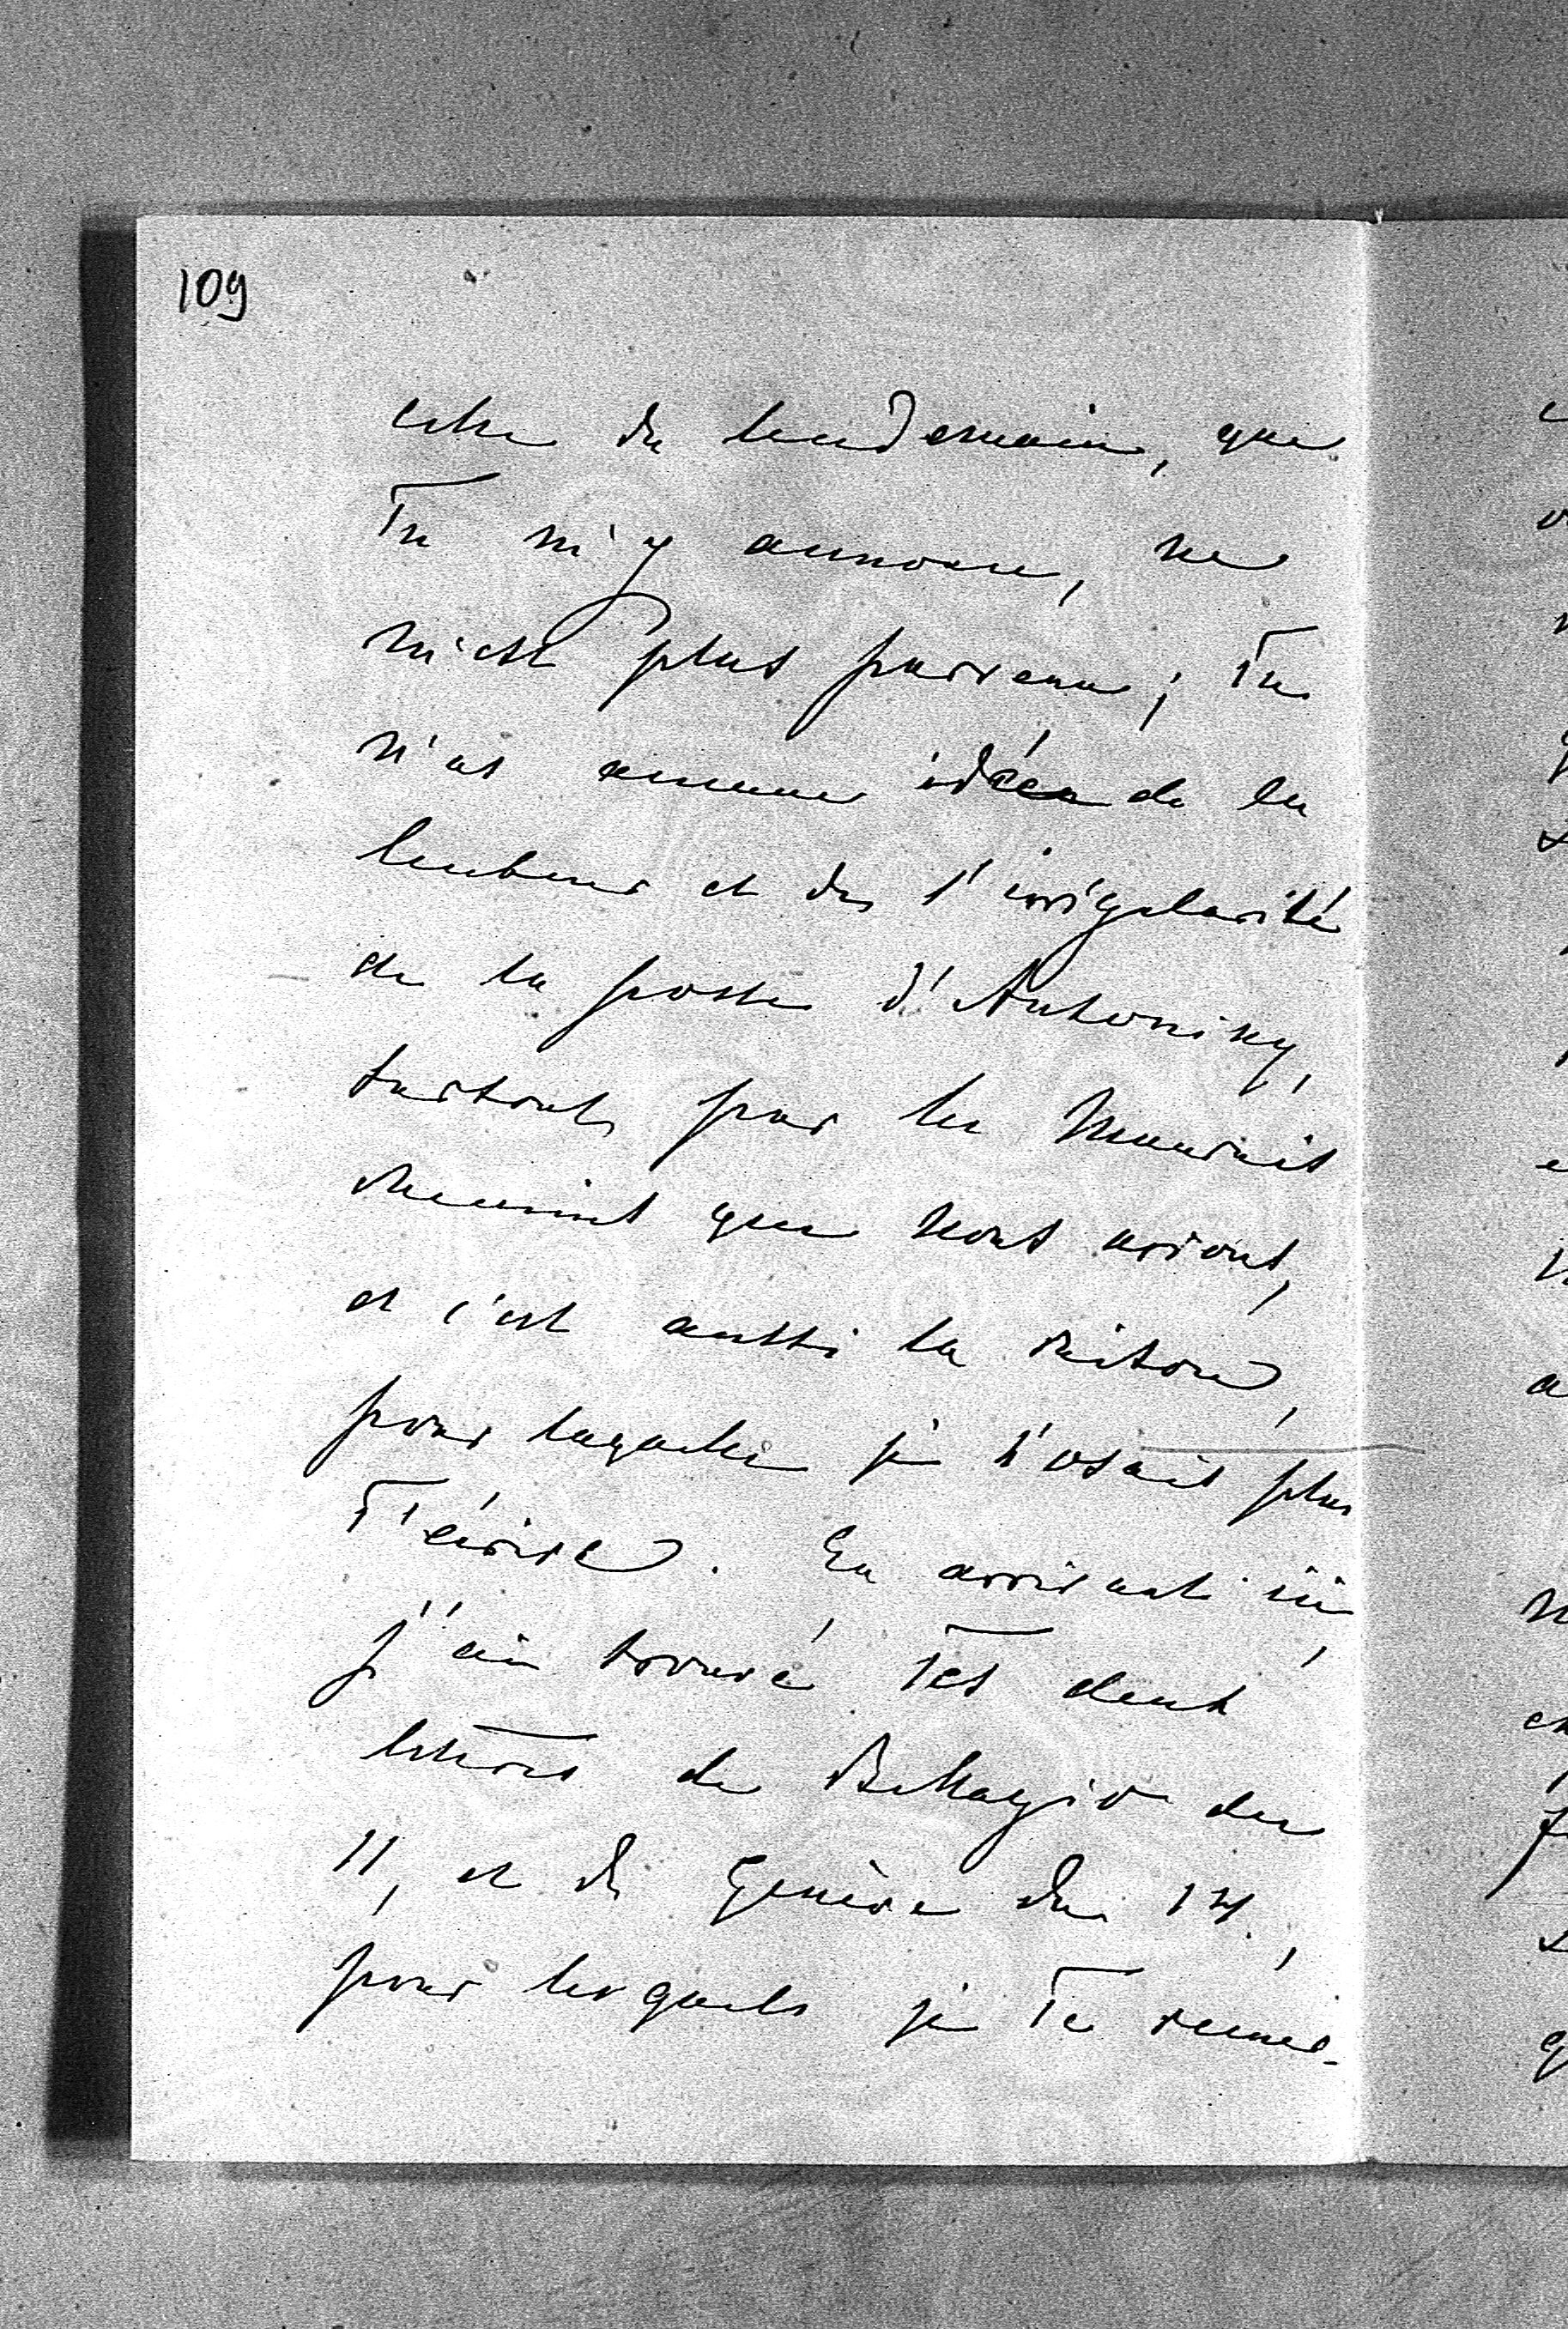 109
celle du lendemain, que
Tu m'y annonce, ne
m'est plus parvenu; Tu
n'as aucune idée de la
lenteur et de l'irrégularité
de la poste d'Antoniny,
surtout par les mauvais
chemins que nous avions,
et c'est aussi la raison,
pour laquelle je n'osais plus
T'écrire. En arrivant ici,
j'ai trouvé Tes deux
lettres de Bellagio du
11, et de Genève du 14,
pour lesquels je Te remer-